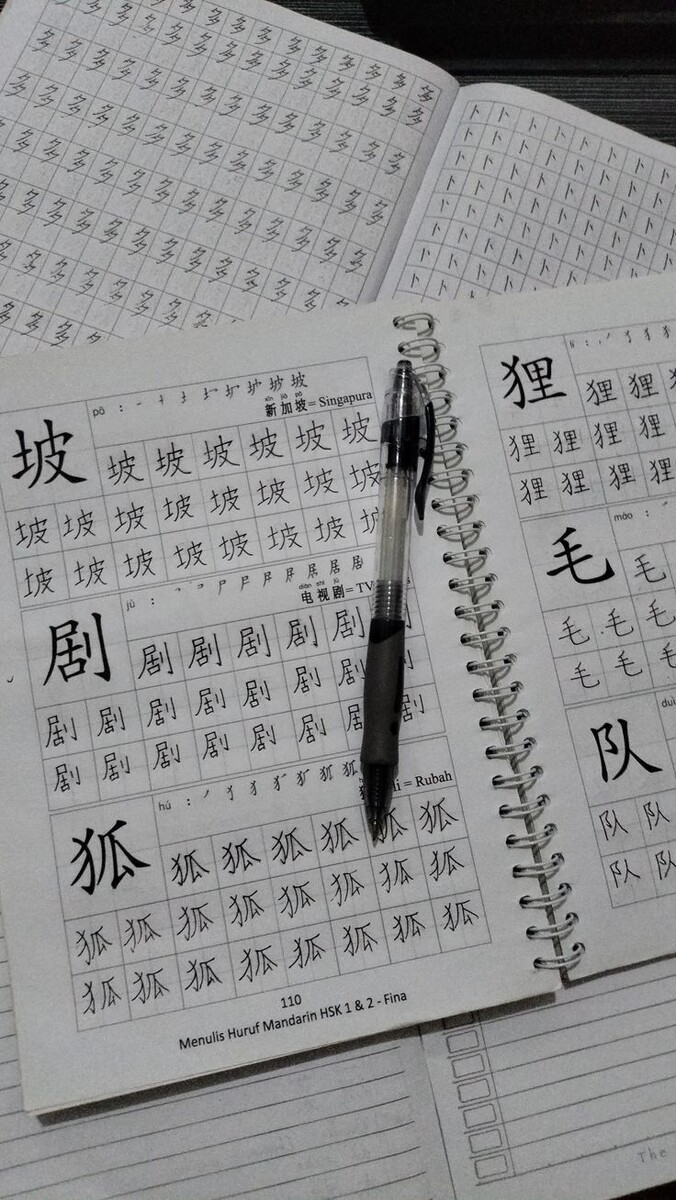 多 多 多 多 多 多 多 多 多
多 多 多 多 多 多 多 多 多 多
多 多 多 多 多 多 多 多 多 多 多
多 多 多 多 多 多 多 多 多 多 多
多 多 多 多 多 多 多 多 多 多
多 多 多 多 多 多 多 多 多
多 多 多 多 多 多
多 多 多 多
卜 卜 卜 卜 卜 卜 卜
卜 卜 卜 卜 卜 卜 卜
卜 卜 卜 卜 卜 卜 卜
卜 卜 卜 卜 卜 卜 卜
卜 卜 卜 卜 卜 卜 卜
卜 卜 卜 卜 卜 卜
pō :
xīn jiā pō
新加坡= Singapura
坡 坡 坡 坡 坡 坡 坡
坡 坡 坡 坡 坡 坡 坡
坡 坡 坡 坡 坡 坡 坡
jù :
diàn shì jù
电视剧= TV
剧 剧 剧 剧 剧 剧
剧 剧 剧 剧 剧 剧 剧
剧 剧 剧 剧 剧 剧 剧 剧
hú :
= Rubah
狐 狐 狐 狐 狐 狐 狐
狐 狐 狐 狐 狐 狐 狐 狐
狐 狐 狐 狐 狐 狐 狐 狐
110
Menulis Huruf Mandarin HSK 1 & 2 - Fina
狸 狸 狸
狸 狸 狸 狸
狸 狸 狸 狸
máo :
毛 毛
毛 毛 毛
毛 毛 毛
队
队 队
队 队
The